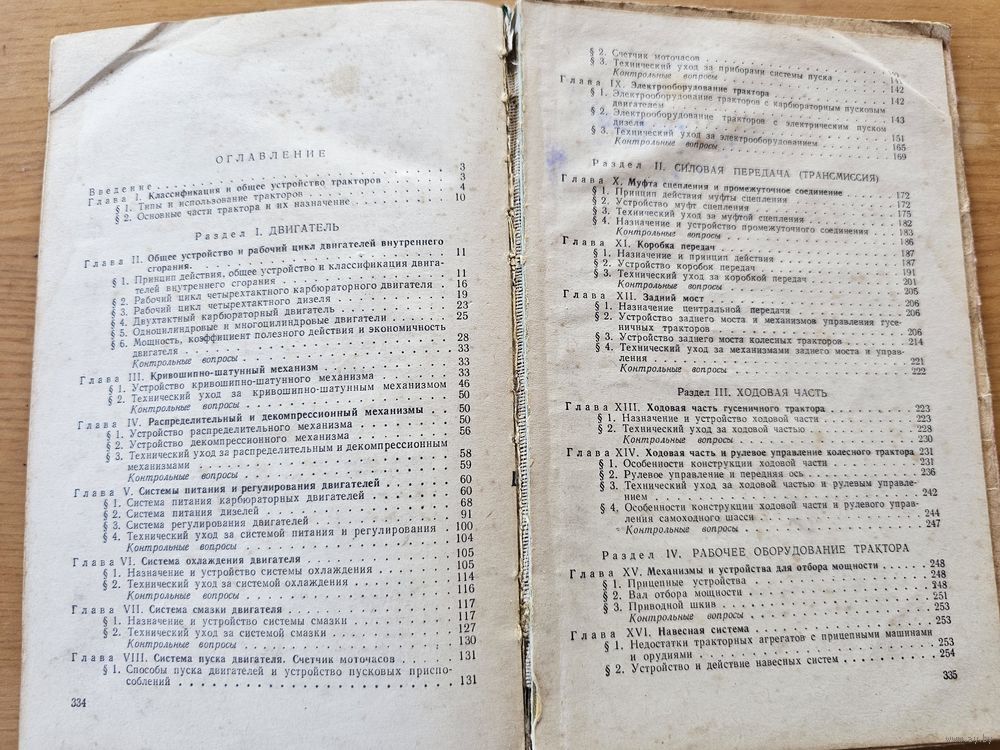 ОГЛАВЛЕНИЕ
Введение . . . 3
Глава I. Классификация и общее устройство тракторов . . . 3
§ 1. Типы и использование тракторов . . . 4
§ 2. Основные части трактора и их назначение . . . 10
Раздел I. ДВИГАТЕЛЬ
Глава II. Общее устройство и рабочий цикл двигателей внутреннего
сгорания. . . . 11
§ 1. Принцип действия, общее устройство и классификация двига-
телей внутреннего сгорания . . . 11
§ 2. Рабочий цикл четырехтактного карбюраторного двигателя . 16
§ 3. Рабочий цикл четырехтактного дизеля . . . 19
§ 4. Двухтактный карбюраторный двигатель . . . 23
§ 5. Одноцилиндровые и многоцилиндровые двигатели . . . 25
§ 6. Мощность, коэффициент полезного действия и экономичность
двигателя . . . 28
Контрольные вопросы . . . 33
Глава III. Кривошипно-шатунный механизм . . . 33
§ 1. Устройство кривошипно-шатунного механизма . . . 33
§ 2. Технический уход за кривошипно-шатунным механизмом 46
Контрольные вопросы . . . 50
Глава IV. Распределительный и декомпрессионный механизмы . 50
§ 1. Устройство распределительного механизма . . . 50
§ 2. Устройство декомпрессионного механизма . . . 56
§ 3. Технический уход за распределительным и декомпрессионным
механизмами . . . 58
Контрольные вопросы . . . 59
Глава V. Системы питания и регулирования двигателей . . . 60
§ 1. Система питания карбюраторных двигателей . . . 60
§ 2. Система питания дизелей . . . 68
§ 3. Система регулирования двигателей . . . 91
§ 4. Технический уход за системой питания и регулирования . 100
Контрольные вопросы . . . 104
Глава VI. Система охлаждения двигателя . . . 105
§ 1. Назначение и устройство системы охлаждения . . . 105
§ 2. Технический уход за системой охлаждения . . . 114
Контрольные вопросы . . . 116
Глава VII. Система смазки двигателя . . . 117
§ 1. Назначение и устройство системы смазки . . . 117
§ 2. Технический уход за системой смазки . . . 127
Контрольные вопросы . . . 130
Глава VIII. Система пуска двигателя. Счетчик моточасов . . . 131
§ 1. Способы пуска двигателей и устройство пусковых приспо-
соблений . . . 131
334
§ 2. Счетчик моточасов
§ 3. Технический уход за приборами системы пуска
Контрольные вопросы
Глава IX. Электрооборудование трактора . . . 142
§ 1. Электрооборудование тракторов с карбюраторным пусковым
двигателем . . . 142
§ 2. Электрооборудование тракторов с электрическим пуском
дизеля . . . 143
§ 3. Технический уход за электрооборудованием . . . 151
Контрольные вопросы . . . 165
169
Раздел II. СИЛОВАЯ ПЕРЕДАЧА (ТРАНСМИССИЯ)
Глава X. Муфта сцепления и промежуточное соединение
§ 1. Принцип действия муфты сцепления . . . 172
§ 2. Устройство муфт сцепления . . . 172
§ 3. Технический уход за муфтой сцепления . . . 175
§ 4. Назначение и устройство промежуточного соединения . 182
Контрольные вопросы . . . 183
Глава XI. Коробка передач . . . 186
§ 1. Назначение и принцип действия . . . 187
§ 2. Устройство коробок передач . . . 187
§ 3. Технический уход за коробкой передач . . . 191
Контрольные вопросы . . . 201
Глава XII. Задний мост . . . 205
§ 1. Назначение центральной передачи . . . 206
§ 2. Устройство заднего моста и механизмов управления гусе- 206
ничных тракторов . . . 206
§ 3. Устройство заднего моста колесных тракторов . . . 214
§ 4. Технический уход за механизмами заднего моста и управ-
ления . . . 221
Контрольные вопросы . . . 222
Раздел III. ХОДОВАЯ ЧАСТЬ
Глава XIII. Ходовая часть гусеничного трактора . . . 223
§ 1. Назначение и устройство ходовой части . . . 223
§ 2. Технический уход за ходовой частью . . . 228
Контрольные вопросы . . . 230
Глава XIV. Ходовая часть и рулевое управление колесного трактора 231
§ 1. Особенности конструкции ходовой части . . . 231
§ 2. Рулевое управление и передняя ось . . . 236
§ 3. Технический уход за ходовой частью и рулевым управле-
нием . . . 242
§ 4. Особенности конструкции ходовой части и рулевого управ-
ления самоходного шасси . . . 244
Контрольные вопросы . . . 247
Раздел IV. РАБОЧЕЕ ОБОРУДОВАНИЕ ТРАКТОРА
Глава XV. Механизмы и устройства для отбора мощности . . . 248
§ 1. Прицепные устройства . . . 248
§ 2. Вал отбора мощности . . . 248
§ 3. Приводной шкив . . . 251
Контрольные вопросы . . . 253
Глава XVI. Навесная система . . . 253
§ 1. Недостатки тракторных агрегатов с прицепными машинами
и орудиями . . . 253
§ 2. Устройство и действие навесных систем . . . 254
335